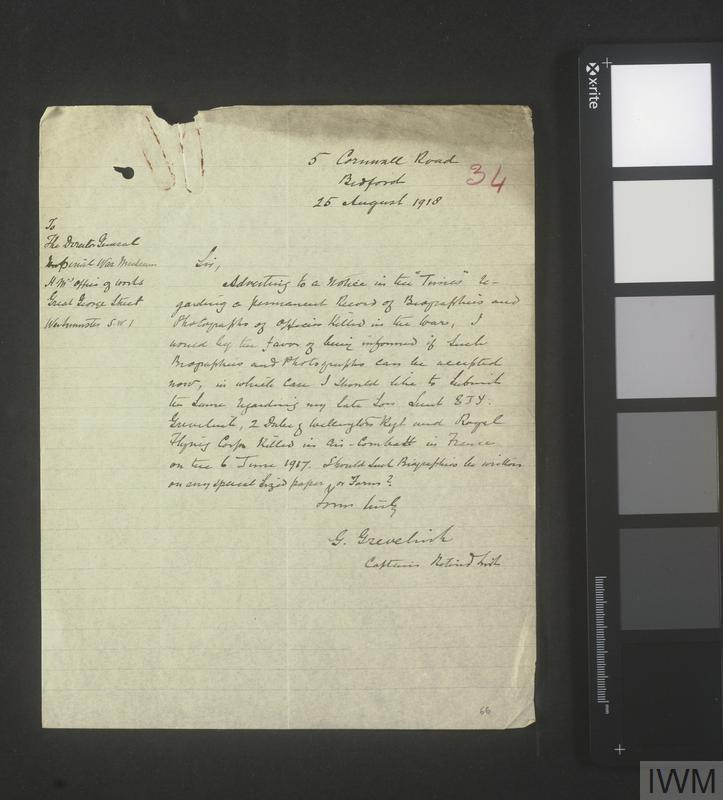 5 Cornwall Road
Bedford
34
25 August 1918
To
The Director General
Imperial War Museum
H M's Office of Works
Great George Street
Westminster S.W.1
Sir,
Adverting to a Notice in the "Times" re-
garding a permanent Record of Biographies and
Photographs of Officers Killed in the War, I
would beg the favor of being informed if such
Biographies and Photographs can be accepted
now, in which case I should like to submit
the same regarding my late Son Lieut
Grevelink, 2 Duke of Wellington's Regt and Royal
Flying Corps Killed in Air-Combatt in France
on the 6 June 1917. Should such Biographies be written
on any special sized paper, or Forms?
Yours truly
G. Grevelink
Captain Retired List
66
x-rite
mm
IWM